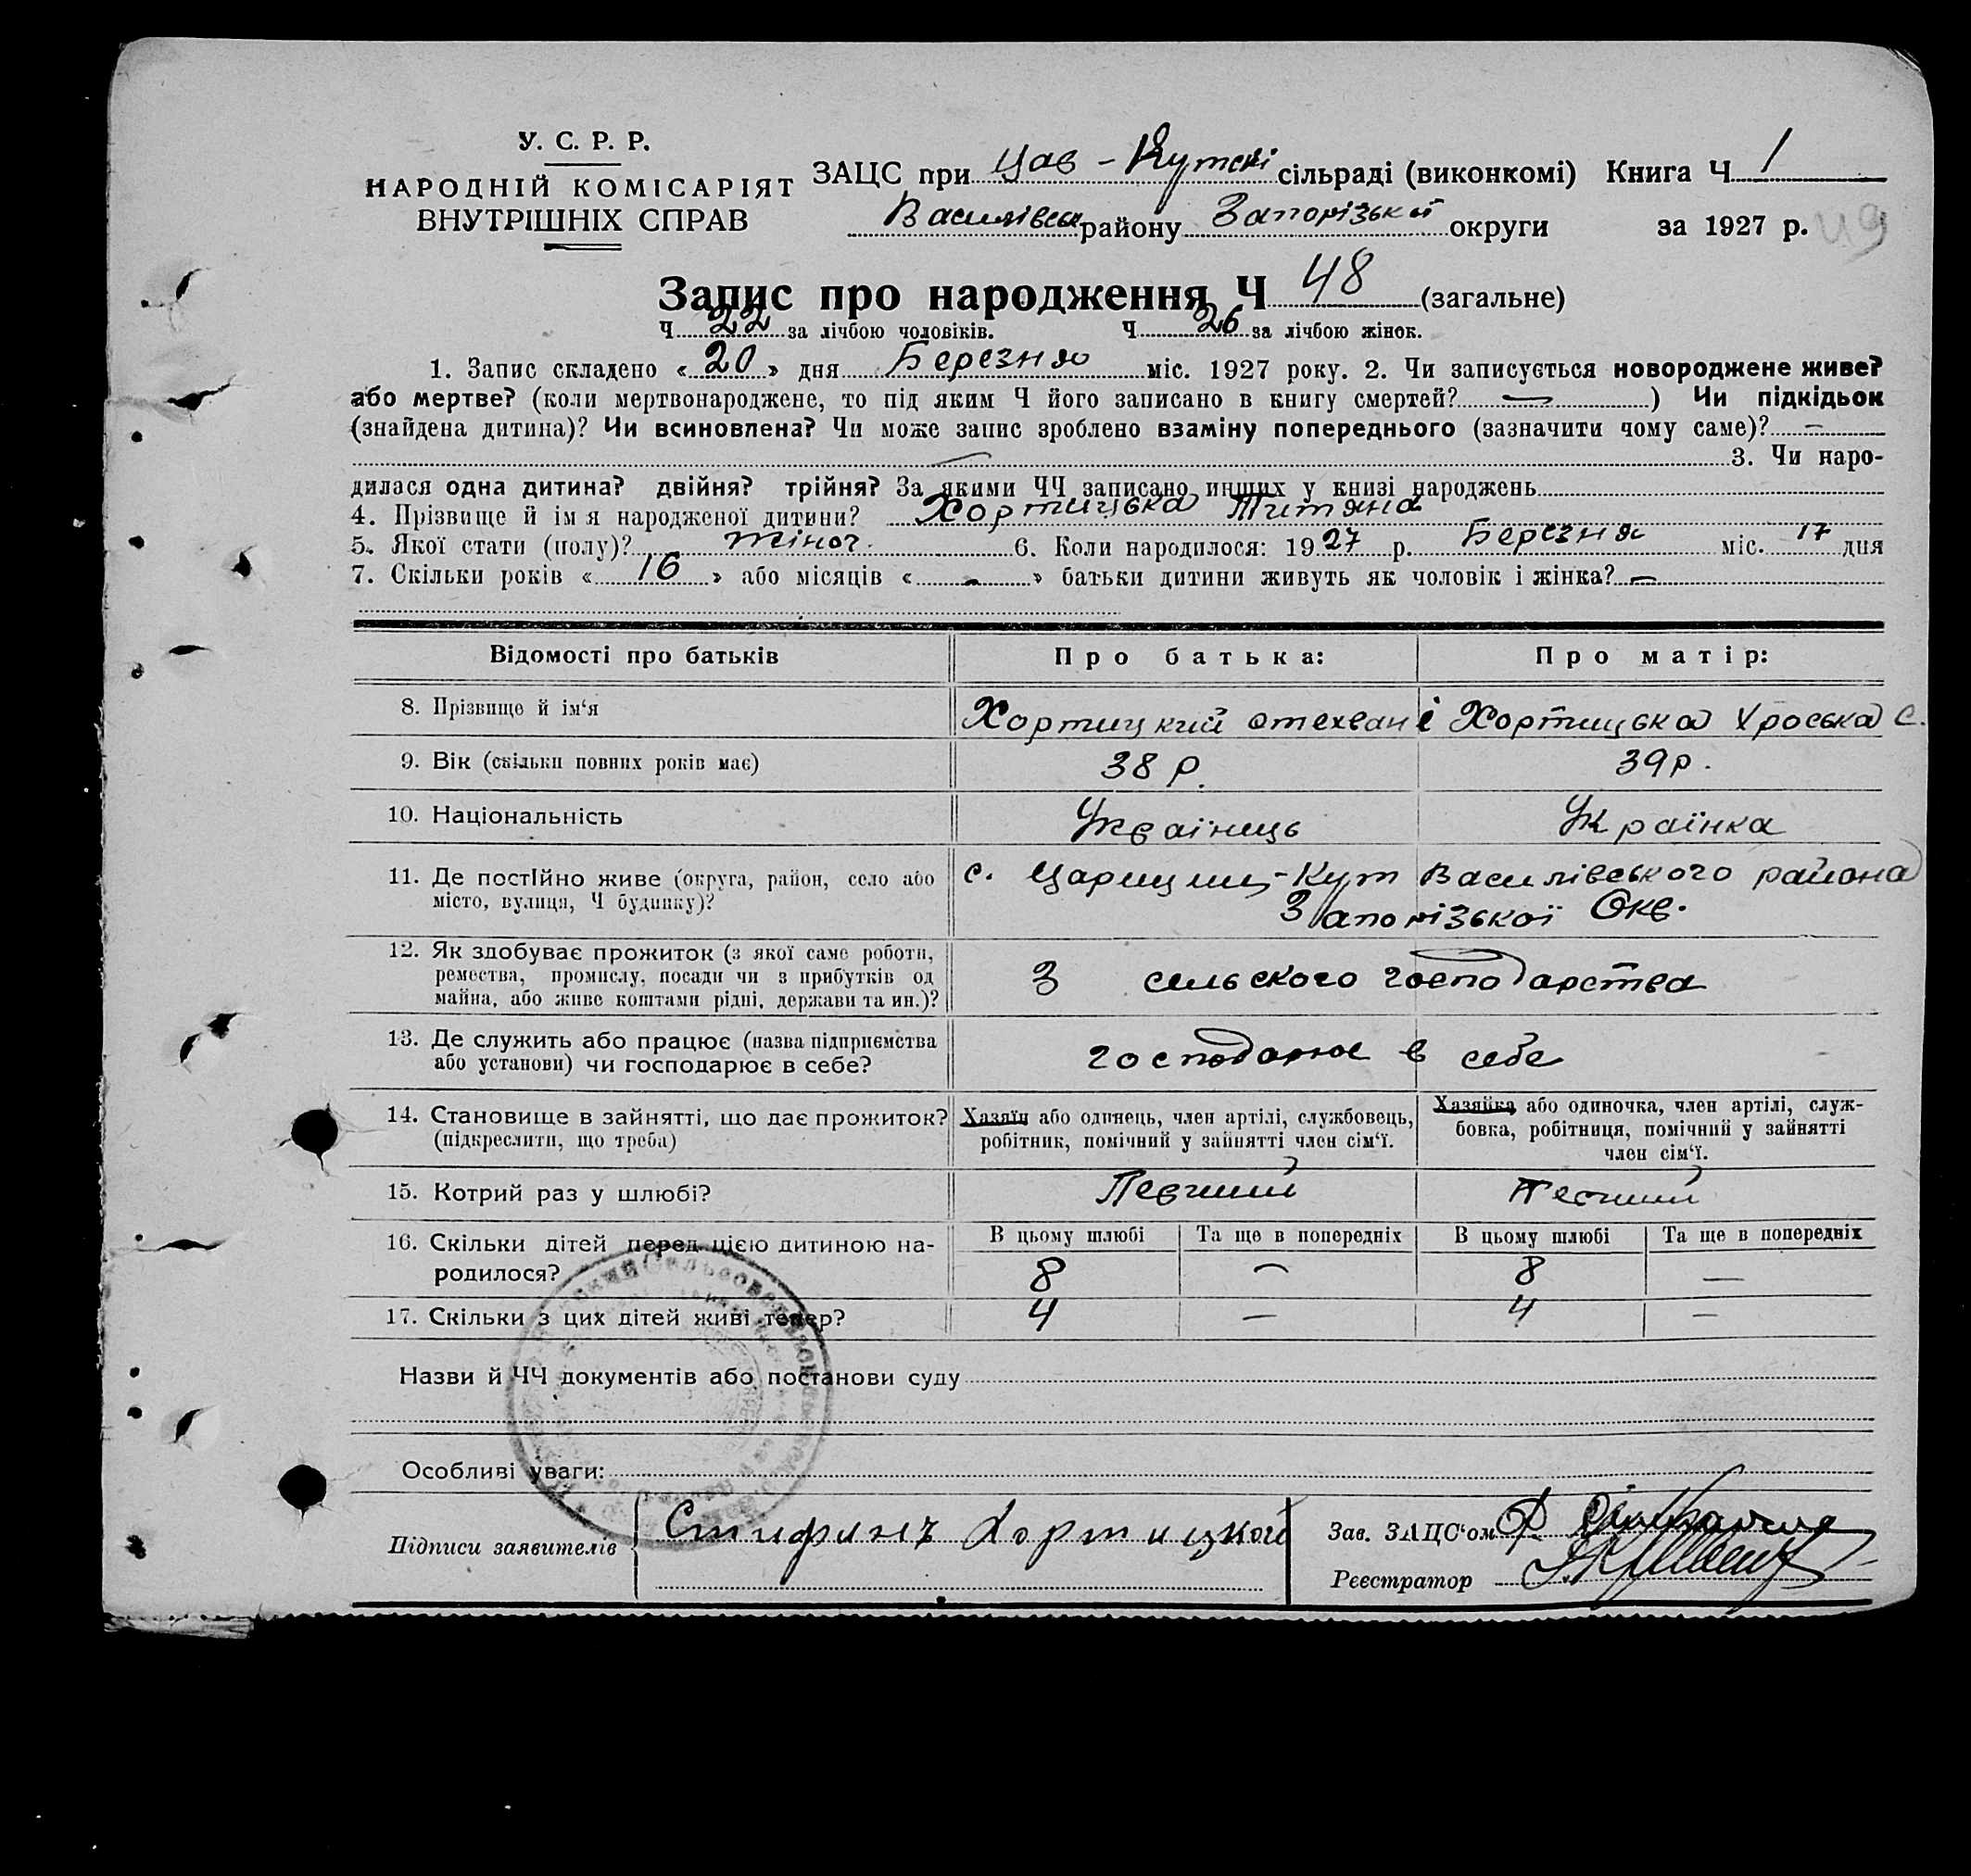 У. С. Р. Р.
НАРОДНІЙ КОМІСАРІЯТ
ВНУТРІШНІХ СПРАВ
ЗАЦС при Цар-Кутскі сільраді (виконкомі) Книга Ч 1
Василівськ району Запорізької округи за 1927 р. 49
Запис про народження Ч 48 (загальне)
Ч 22 за лічбою чоловіків. Ч 26 за лічбою жінок.
1. Запис складено «20» дня Березня міс. 1927 року. 2. Чи записується новороджене живе?
або мертве? (коли мертвонароджене, то під яким Ч його записано в книгу смертей? —) Чи підкідьок
(знайдена дитина)? Чи всиновлена? Чи може запис зроблено взаміну попереднього (зазначити чому саме)? —
— 3. Чи наро-
дилася одна дитина? двійня? трійня? За якими ЧЧ записано инших у книзі народжень
4. Прізвище й імя народженої дитини? Хортицька Титяна
5. Якої стати (полу)? жіноч. 6. Коли народилося: 1927 р. Березня міс. 17 дня
7. Скільки років «16» або місяців «-» батьки дитини живуть як чоловік і жінка? —
Відомості про батьків Про батька: Про матір:
8. Прізвище й ім‘я Хортицкий Стехван Хортицька с.
9. Вік (скільки повних років має) 38 р. 39 р.
10. Національність Українець Українка
11. Де постІйно живе (округа, район, село або
місто, вулиця, Ч будинку)?
с. Царицин-Кут Василівського района
Запорізької Окр.
12. Як здобуває прожиток (з якої саме роботи,
ремества, промислу, посади чи з прибутків од
майна, або живе коштами рідні, держави та ин.)?
З сельского господарства
13. Де служить або працює (назва підприємства
або установи) чи господарює в себе?
господарює в себе
14. Становище в зайнятті, що дає прожиток?
(підкреслити, що треба)
Хазяїн або одинець, член артілі, службовець,
робітник, помічний у зайнятті член сім‘ї.
Хазяйка або одиночка, член артілі, служ-
бовка, робітниця, помічний у зайнятті
член сім‘ї.
15. Котрий раз у шлюбі? Перший Перший
16. Скільки дітей перед цією дитиною на-
родилося?
В цьому шлюбі Та ще в попередніх В цьому шлюбі Та ще в попередніх
8 — 8 —
17. Скільки з цих дітей живі тепер? 4 — 4 —
Назви й ЧЧ документів або постанови суду
Особливі уваги:
Підписи заявителів Стифинъ Хортицкой
Зав. ЗАЦС‘ом
Реєстратор